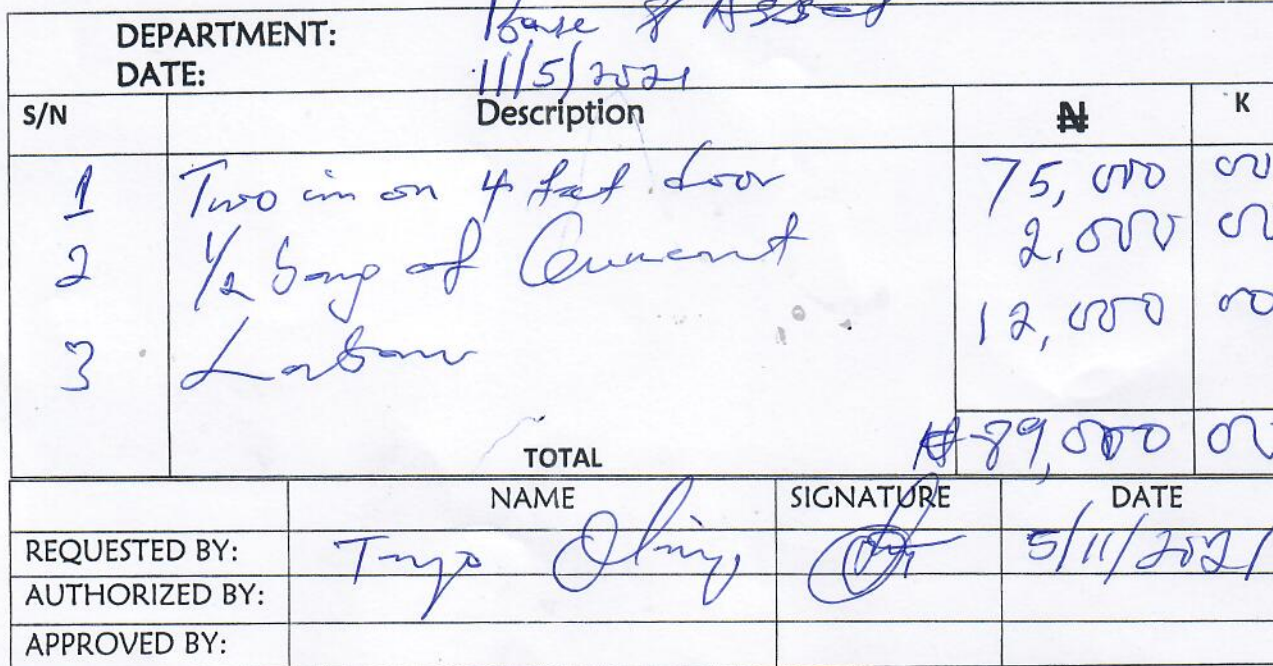 DEPARTMENT: House & Assed
DATE: 11/5/2021
S/N Description ₦ K
1 Two in on 4 feet door 75,000 00
2 1/2 bag of Cement 2,000 00
3 Labour 12,000 00
TOTAL ₦ 89,000 00
NAME SIGNATURE DATE
REQUESTED BY: 5/11/2021
AUTHORIZED BY:
APPROVED BY: